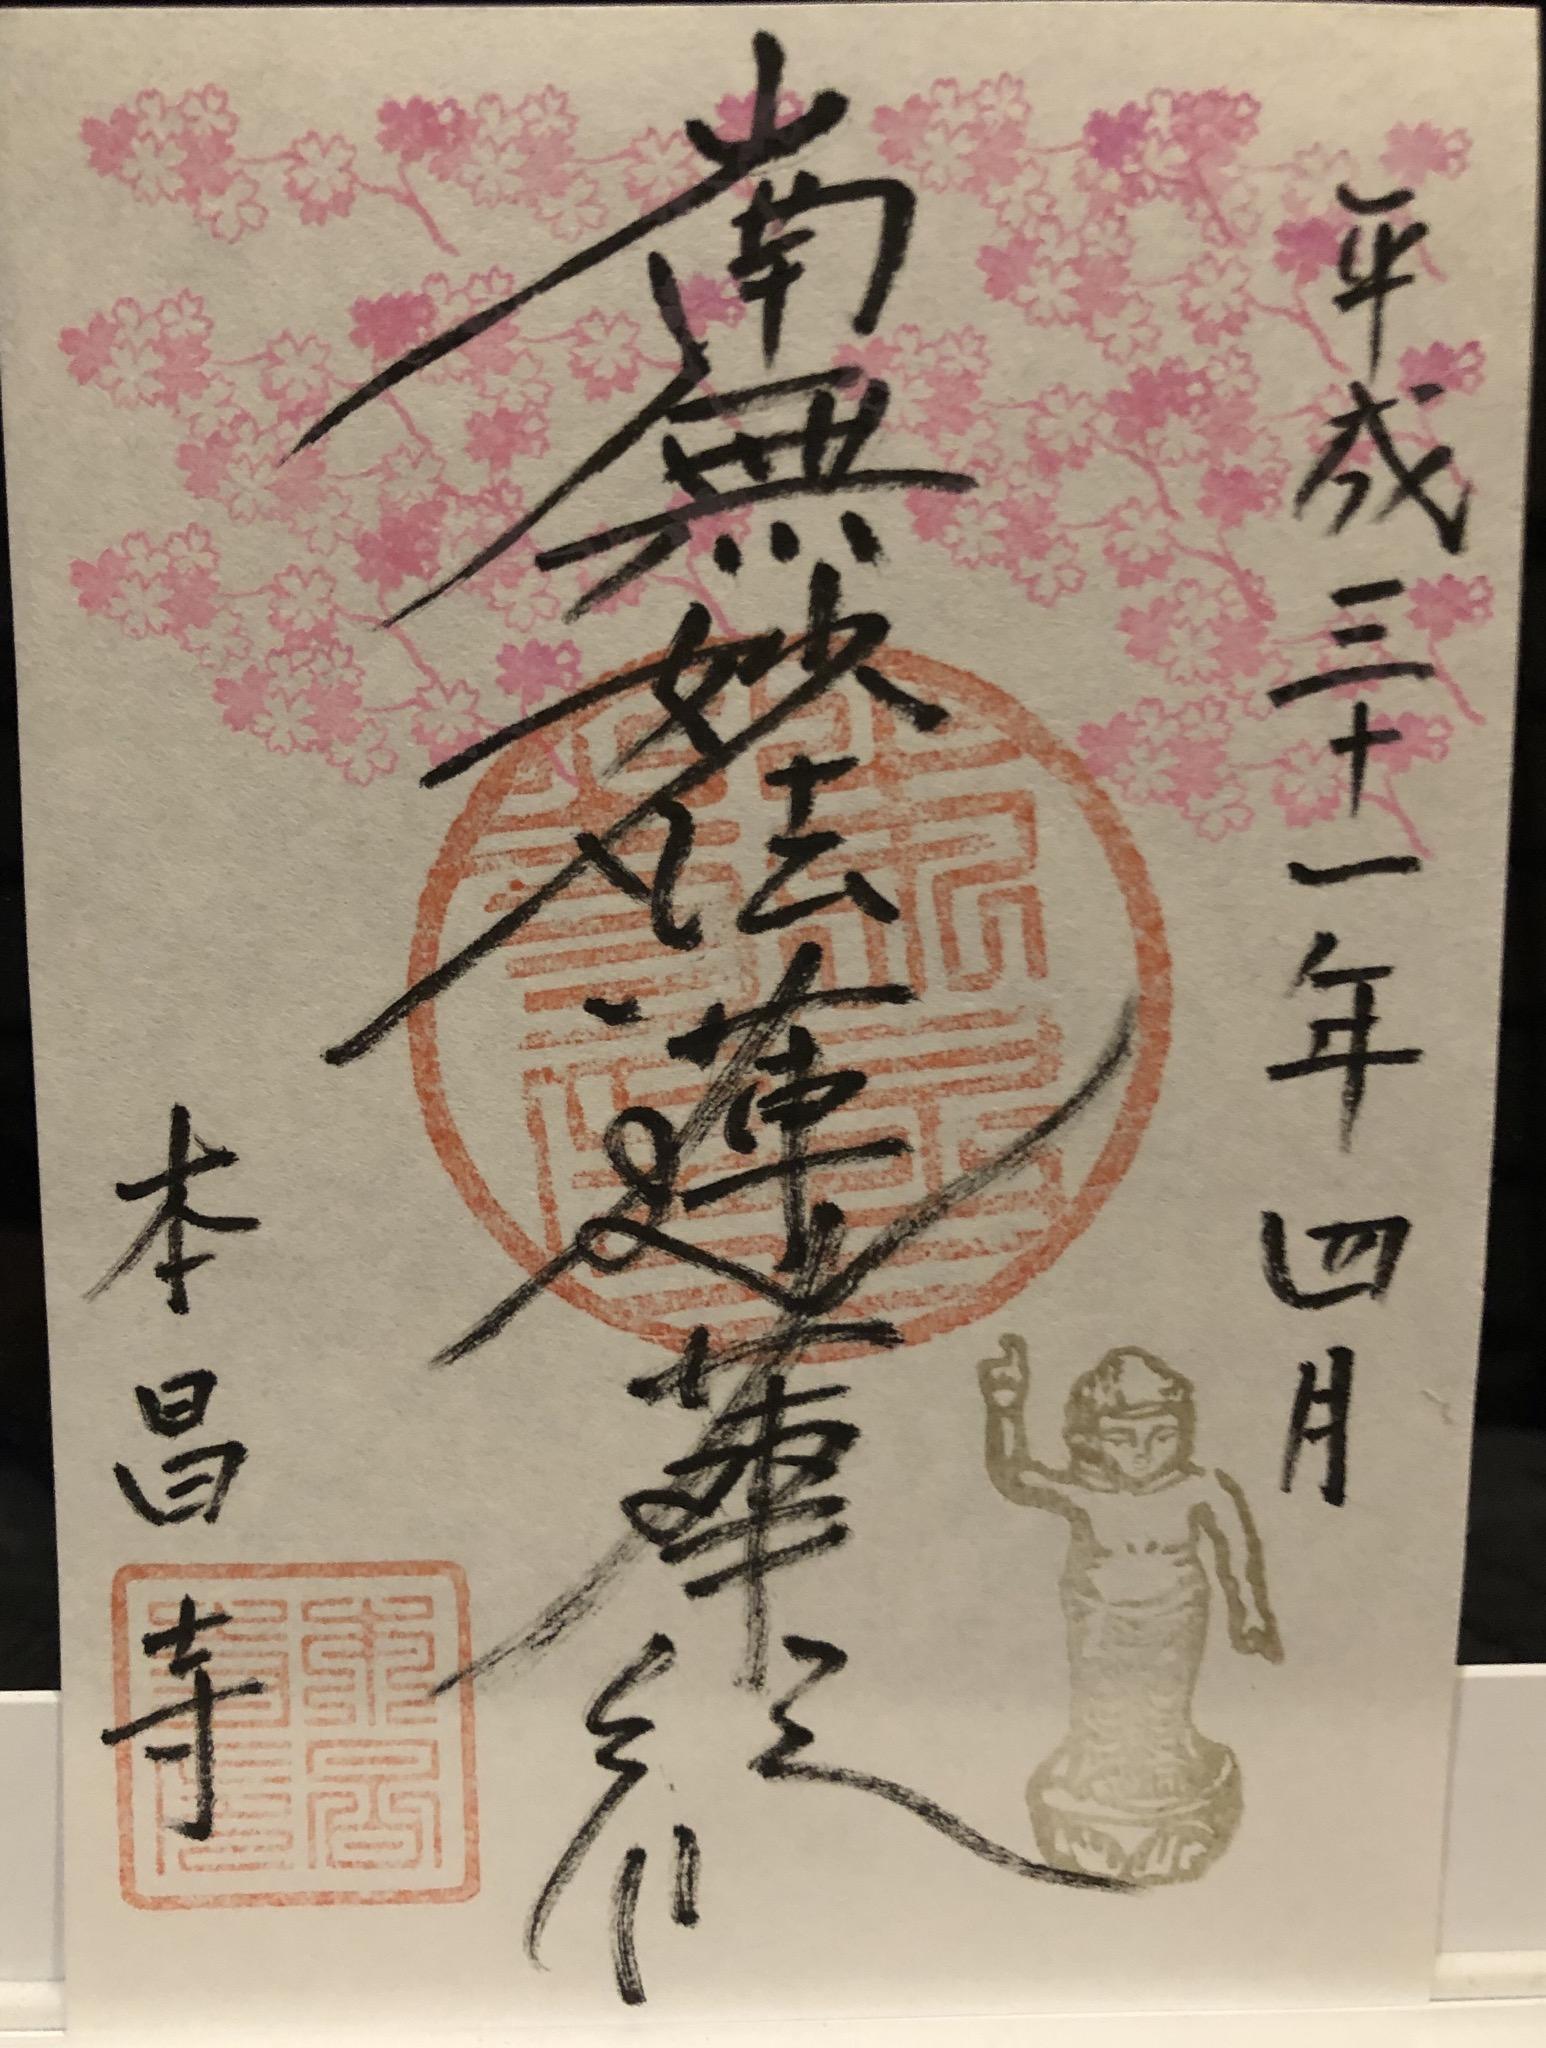 平成三十一年四月
南無妙法蓮華経
本昌寺